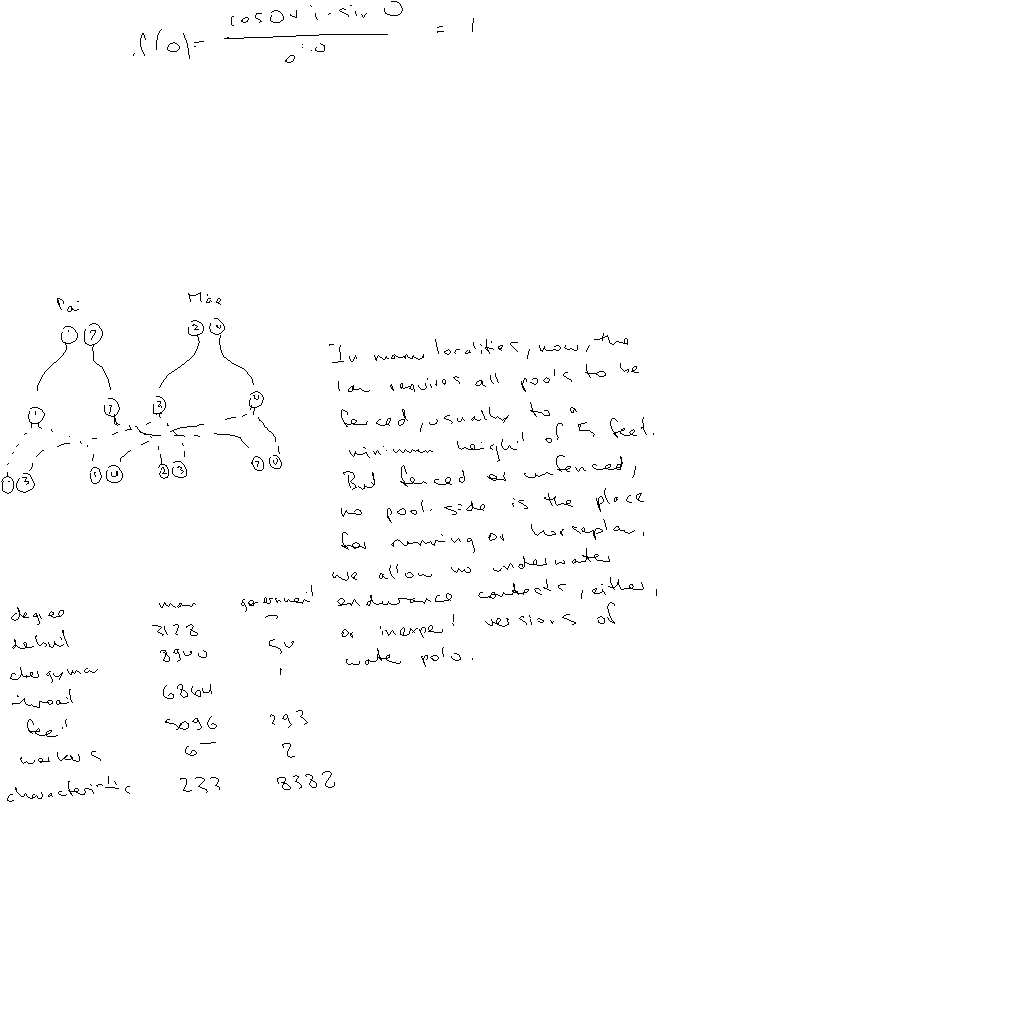 f(0) = cos 0 + i · sin 0 / e^i·0 = 1
Pai Mãe
1 2 3 4
1 2 3 4
1 3 1 4 2 3 2 4
In many localities, now, the
law requires all pools to be
fenced, usually to a
minimum height of 5 feet.
But fenced or unfenced,
no pool-side is the place
for running or horseplay.
we allow no underwater
endurance contests, either,
or inexpert versions of
water polo.
degree man government
debut 3128
clergyman 8940 54
6864 1
feet 5096 293
workers 6 2
characteristic 233 8382